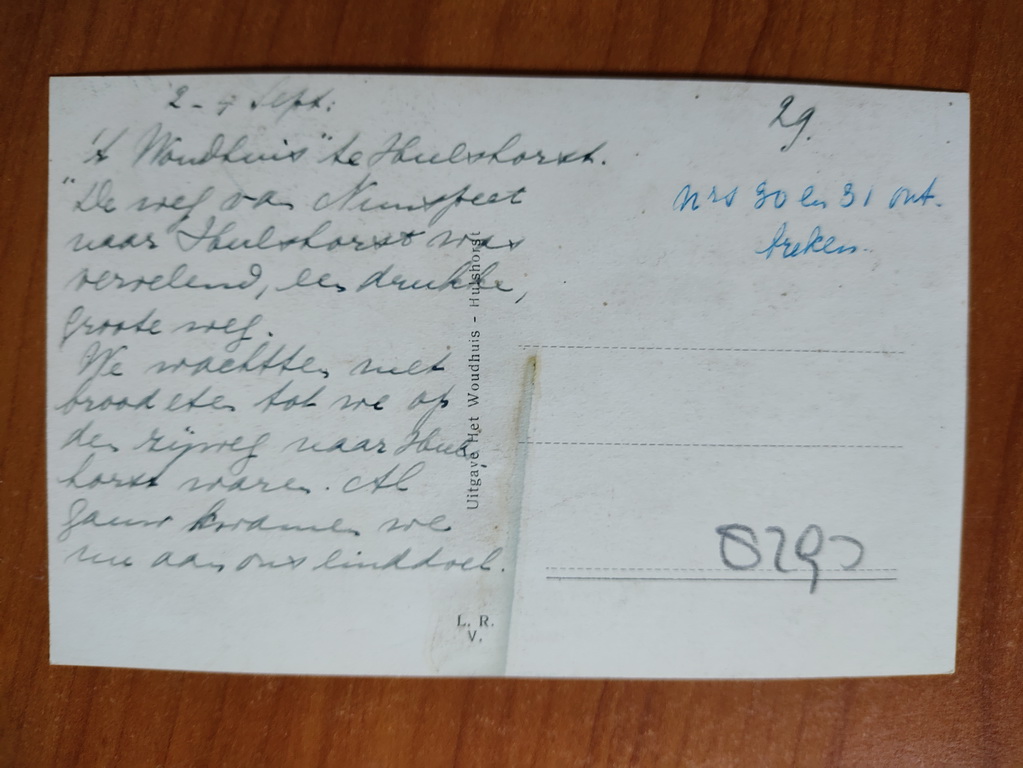 2 - 7 Sept:
29.
't Woudhuis" te Hulshorst.
"De weg van Nunspeet
naar Hulshorst was
vervelend, een drukke,
groote weg.
We wachtten met
brood eten tot we op
den zijweg naar Huls-
horst waren. Al
gauw kwamen we
nu aan ons einddoel.
nrs 30 en 31 ont-
breken.
Uitgave Het Woudhuis - Hulshorst
L. R.
V.